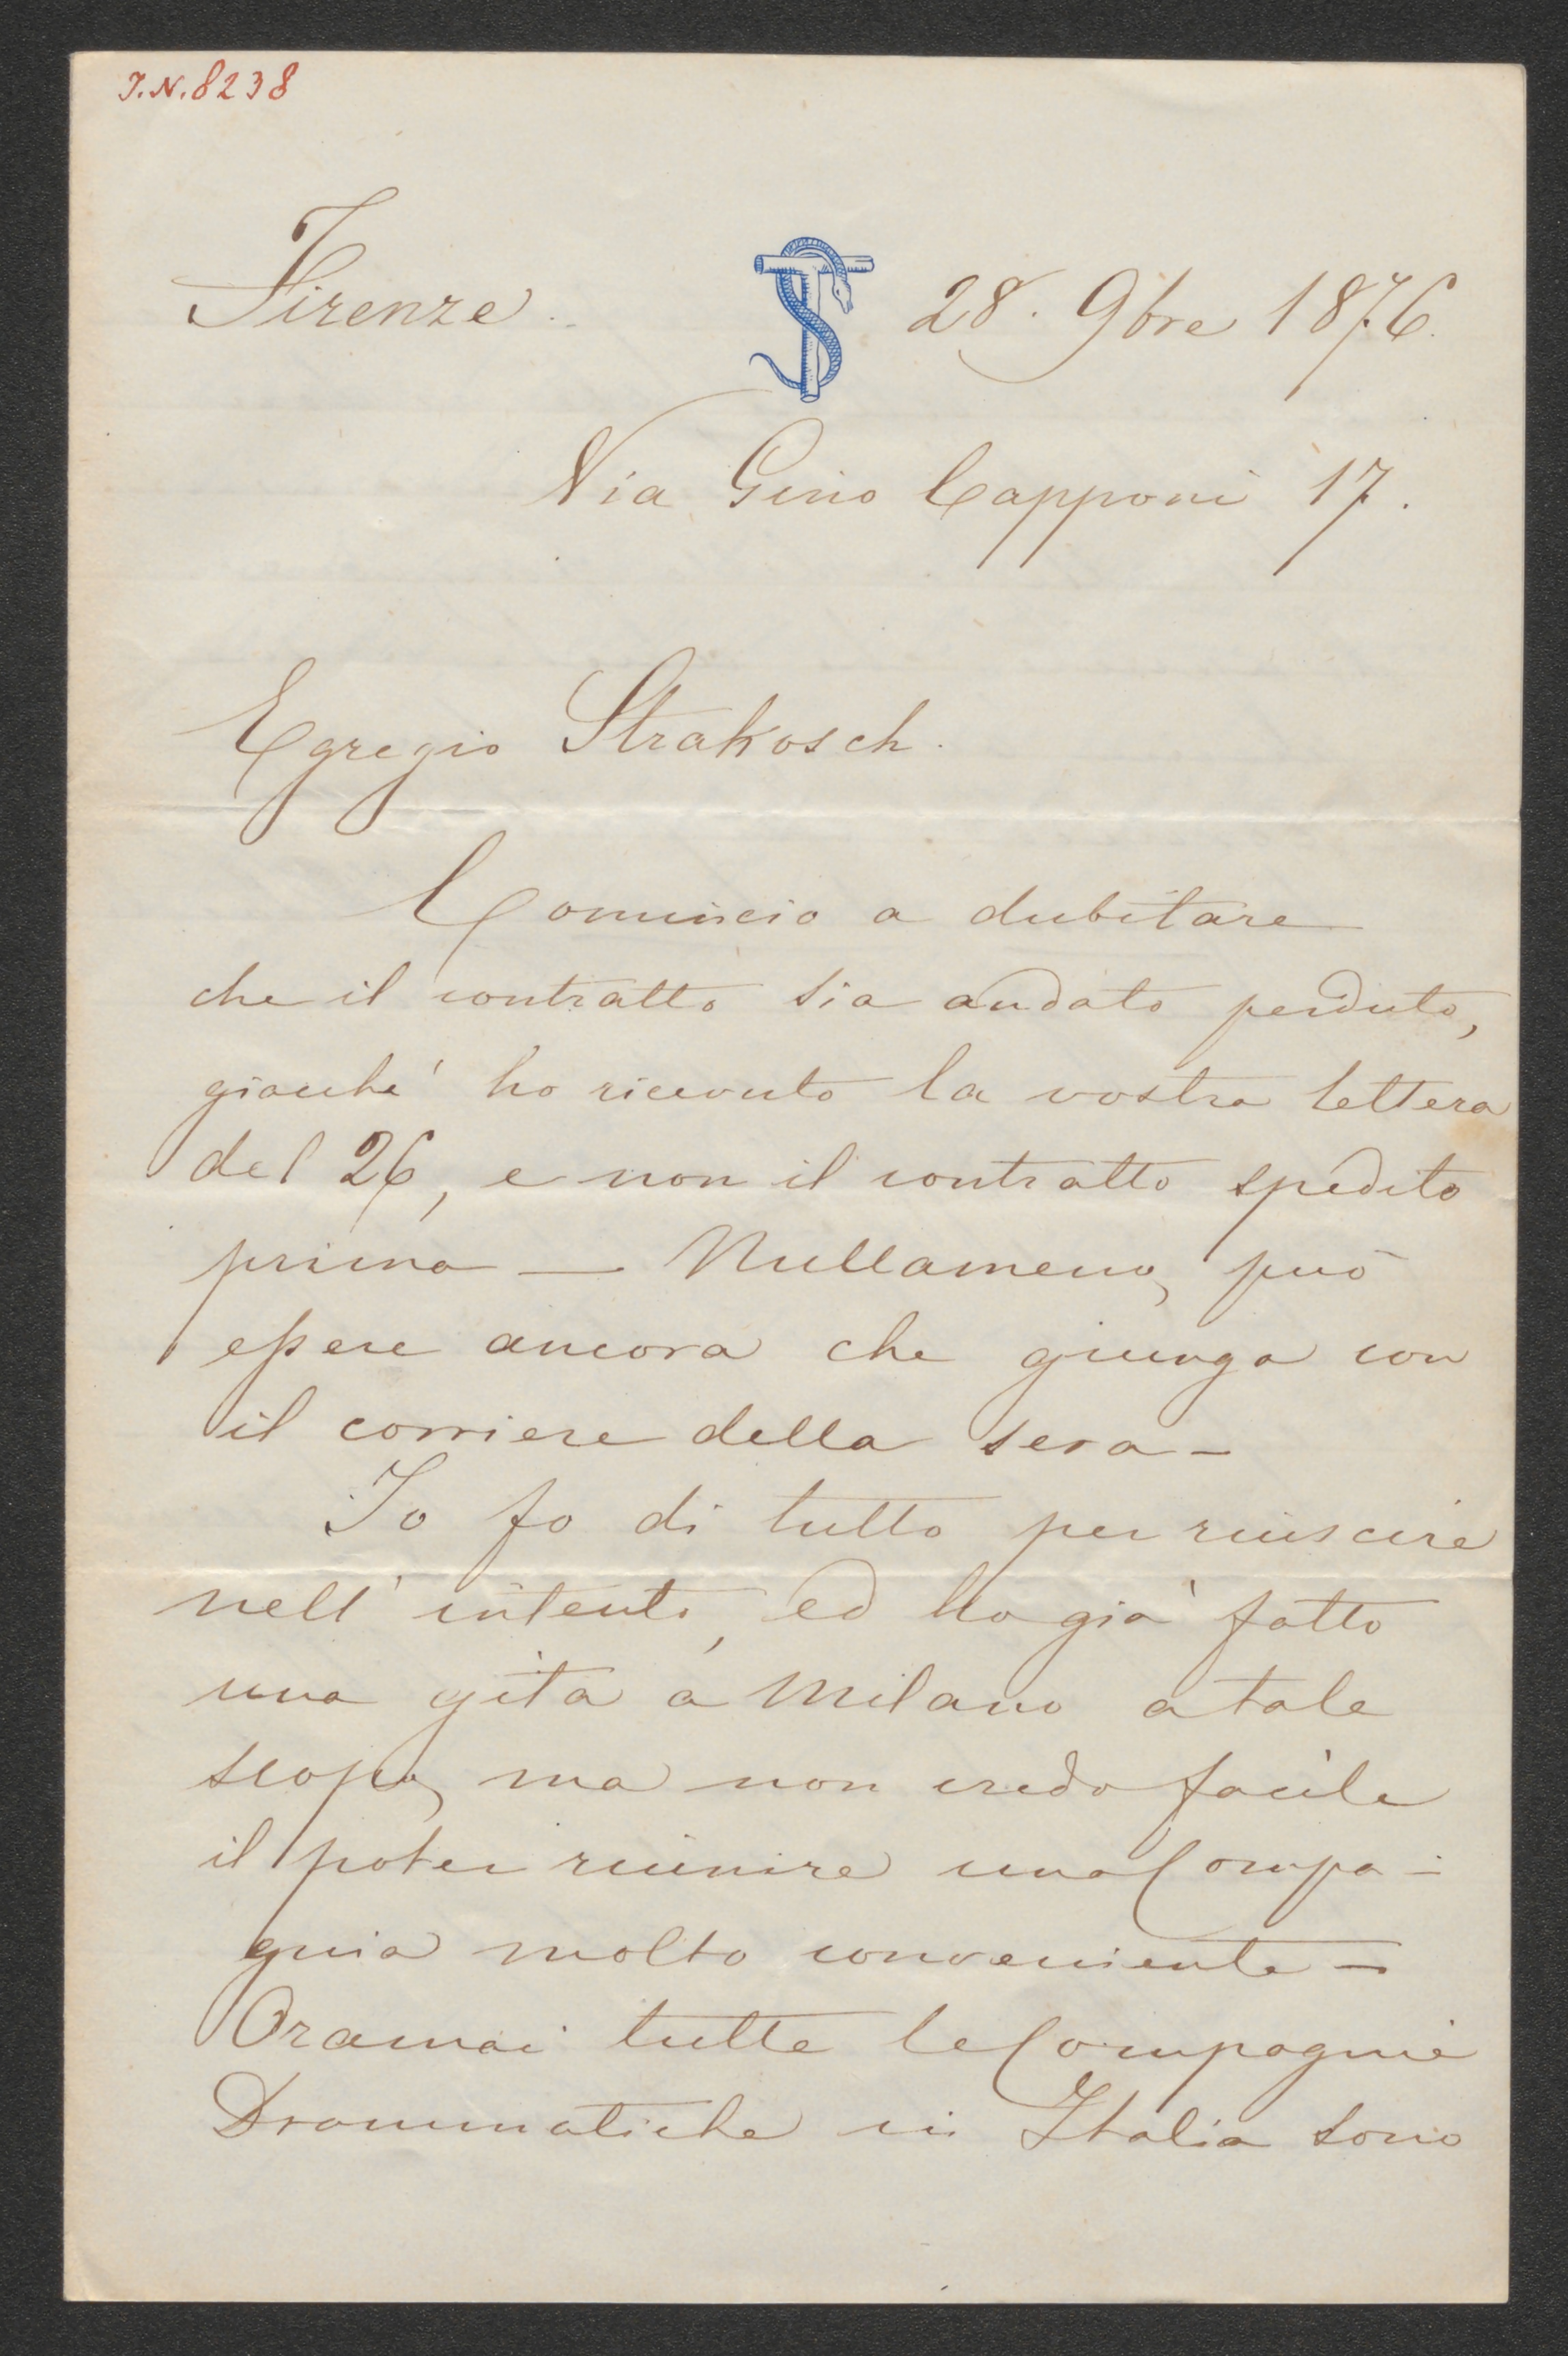 J.N. 8238
Firenze. 28. 9bre 1876.
Via Gino Capponi 17.
Egregio Strakosch.
Comincio a dubitare
che il contratto sia andato perduto,
giacchè ho ricevuto la vostra lettera
del 26, e non il contratto spedito
prima — Nullameno, può
essere ancora che giunga con
il corriere della sera —
Io fo di tutto per riuscire
nell' intento, ed ho già fatto
una gita a Milano a tale
scopo, ma non credo facile
il poter riunire una Compa-
gnia molto conveniente —
Oramai tutte le Compagnie
Drammatiche in Italia sono